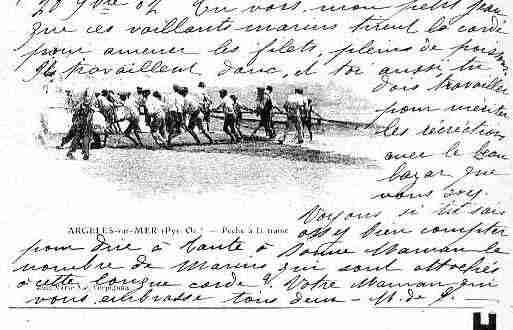 20 9bre 02 En vois, mon petit Jean
que ces vaillants marins tirent la corde
pour amener les filets, pleins de poisson
Ils travaillent donc, et toi aussi, tu
dois travailler
pour mériter
les récréations
avec le beau
bazar que
vous
ARGELES-sur-MER (Pyr.-Or.) — Pêche à la traine
Voyons si tu sais
assez bien compter
pour dire à tante à Bonne Maman le
nombre de Marins qui sont attachés
à cette longue corde ? Votre Maman qui
vous embrasse tous deux — M. de